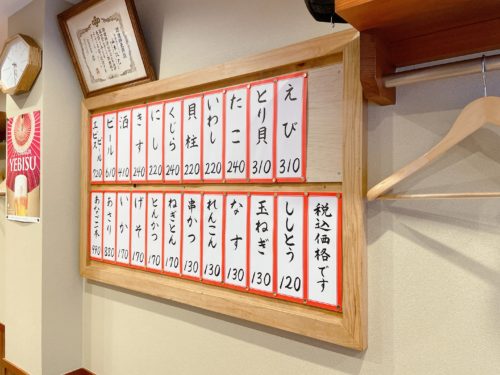 えび 310
とり貝 310
たこ 240
いわし 220
貝柱 220
くじら 240
にし 220
きす 240
酒 410
ビール 610
エビスビール 720
税込価格です
ししとう 120
玉ねぎ 130
なす 130
れんこん 130
串かつ 130
ねぎとん 170
とんかつ 170
げそ 170
いか 170
あさり 380
YEBISU